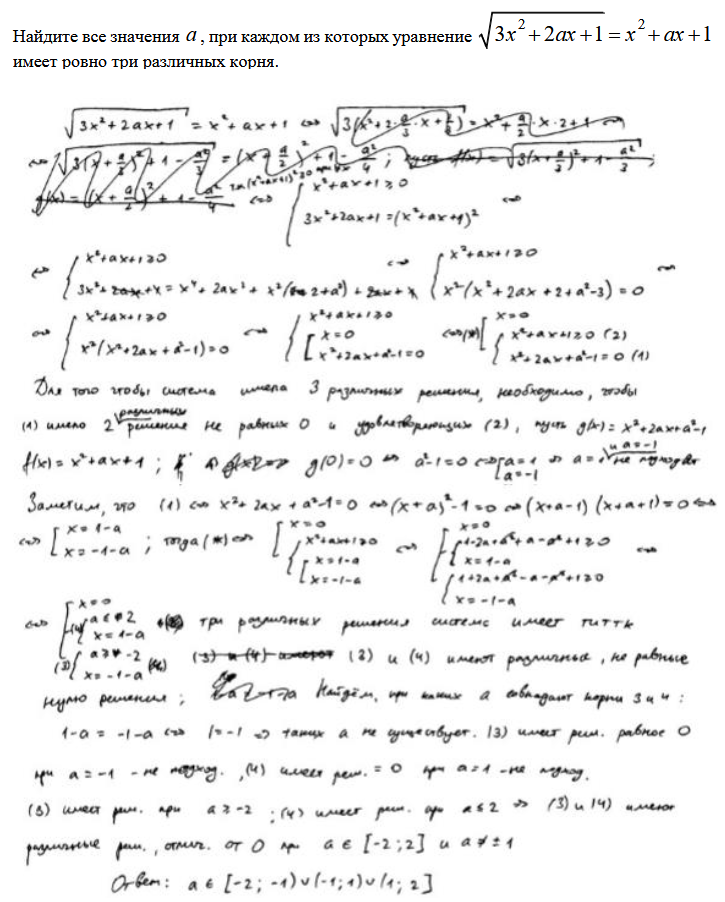 Найдите все значения a, при каждом из которых уравнение √(3x²+2ax+1) = x²+ax+1
имеет ровно три различных корня.
√(3x²+2ax+1) = x²+ax+1 ⇔ √(3(x²+2·a/3·x+1/3)) = x²+a/2·x·2+1 ⇔
⇔ √(3(x+a/3)²+1-a²/3) = (x+a/2)²+1-a²/4; пусть f(x) = √(3(x+a/3)²+1-a²/3);
g(x) = (x+a/2)²+1-a²/4 ⇔ { x²+ax+1≥0
3x²+2ax+1=(x²+ax+1)² ⇔
⇔ { x²+ax+1≥0 ⇔ { x²+ax+1≥0 ⇔
3x²+2ax+x = x⁴+2ax³+x²(2+a²)+2ax+x x²(x²+2ax+2+a²-3)=0
⇔ { x²+ax+1≥0 ⇔ { x²+ax+1≥0 ⇔(*) [ x=0
x²(x²+2ax+a²-1)=0 [ x=0 { x²+ax+1≥0 (2)
x²+2ax+a²-1=0 x²+2ax+a²-1=0 (1)
Для того чтобы система имела 3 различных решения, необходимо, чтобы
(1) имело 2 различных решения не равных 0 и удовлетворяющих (2), пусть g(x)=x²+2ax+a²-1
f(x)=x²+ax+1; g(0)=0 ⇔ a²-1=0 ⇔ [a=1 a=-1 ⇒ a=1 и a=-1 не подходят
Заметим, что (1) ⇔ x²+2ax+a²-1=0 ⇔ (x+a)²-1=0 ⇔ (x+a-1)(x+a+1)=0 ⇔
⇔ [ x=1-a ; тогда (*) ⇔ [ x=0 ⇔ [ x=0
x=-1-a { x²+ax+1≥0 { 1-2a+a²+a-a²+1≥0 ⇔
[ x=1-a x=1-a
x=-1-a { 1+2a+a²-a-a²+1≥0
x=-1-a
⇔ [ x=0
(4) { a≤2 три различных решения система имеет титтк
x=1-a
(3) { a≥-2 (3) и (4) имеют различные, не равные
x=-1-a
нулю решения; Найдём, при каких a совпадают корни 3 и 4:
1-a = -1-a ⇔ 1=-1 ⇒ таких a не существует. (3) имеет реш. равное 0
при a=-1 - не подход., (4) имеет реш. =0 при a=1 - не подход.
(3) имеет реш. при a≥-2; (4) имеет реш. при a≤2 ⇒ (3) и (4) имеют
различные реш., отлич. от 0 при a∈[-2;2] и a≠±1
Ответ: a∈[-2;-1)∪(-1;1)∪(1;2]